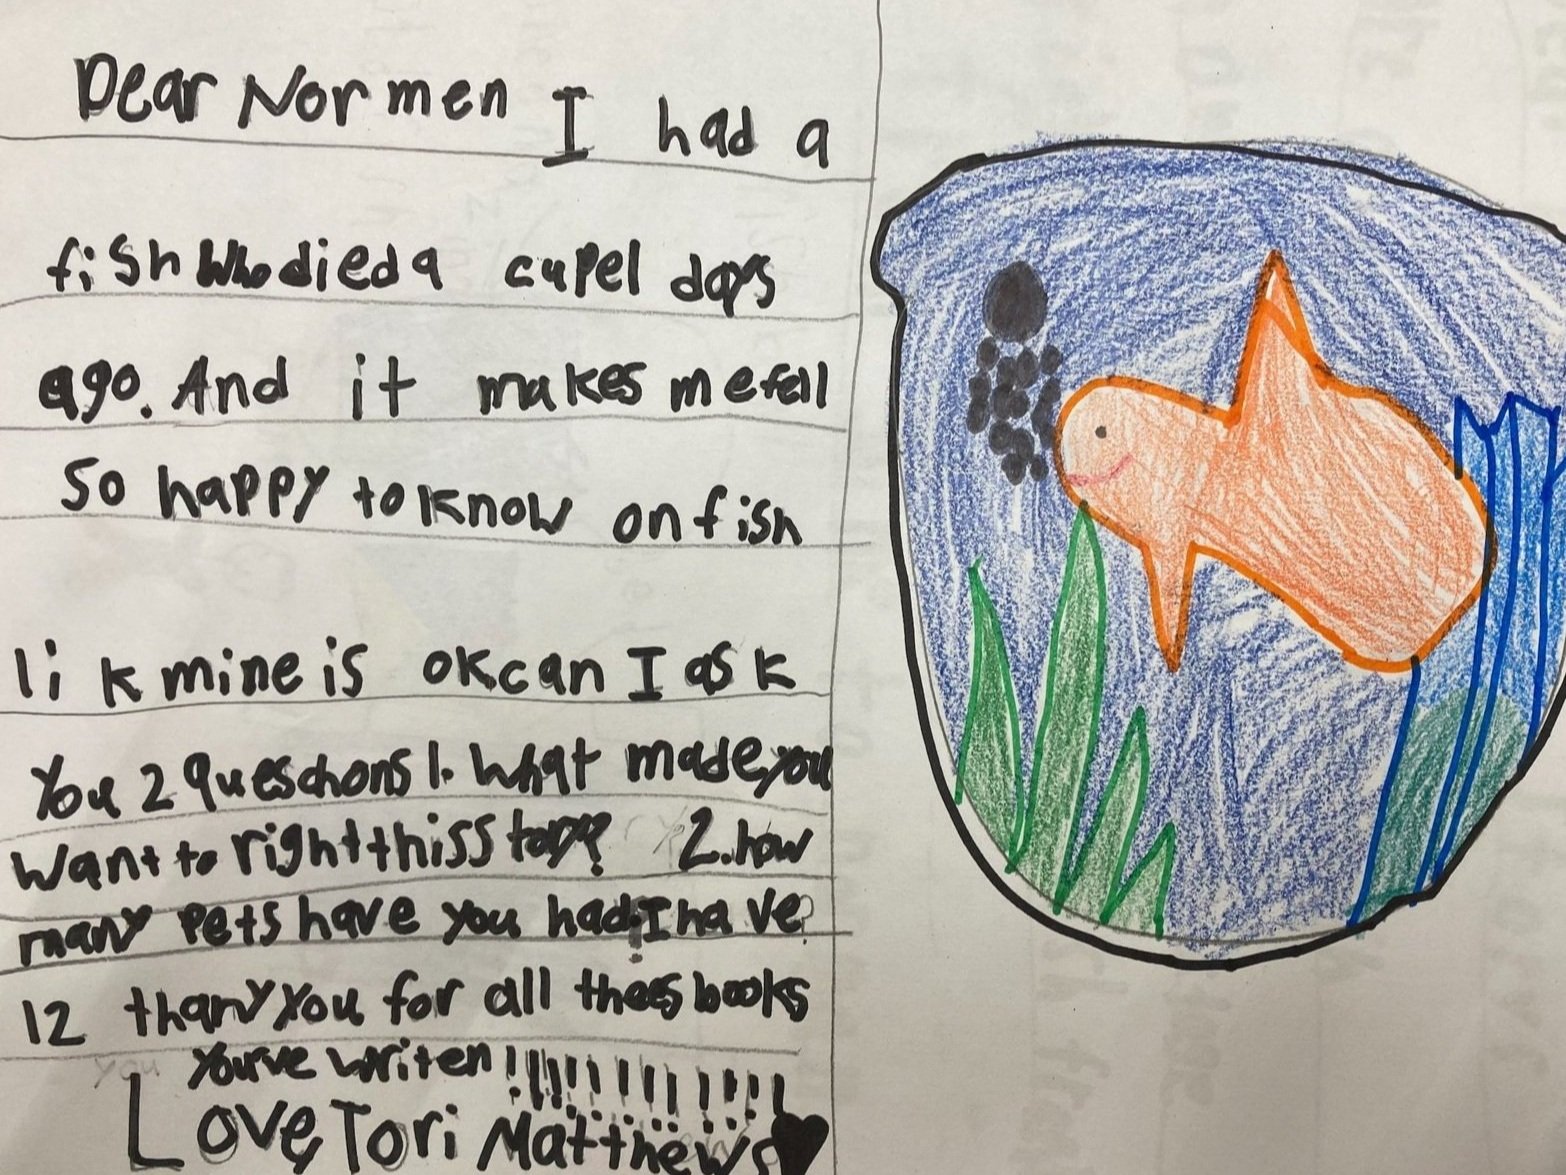 Dear Normen I had a
fish Who died a cupel days
ago. And it makes me fell
So happy to know on fish
lik mine is ok can I ask
You 2 Queschons 1. What made you
Want to right this story? 2. how
many Pets have you had? I have
12 thany you for all thees books
You've writen!!!!!!!!!!!!
Love, Tori Matthews